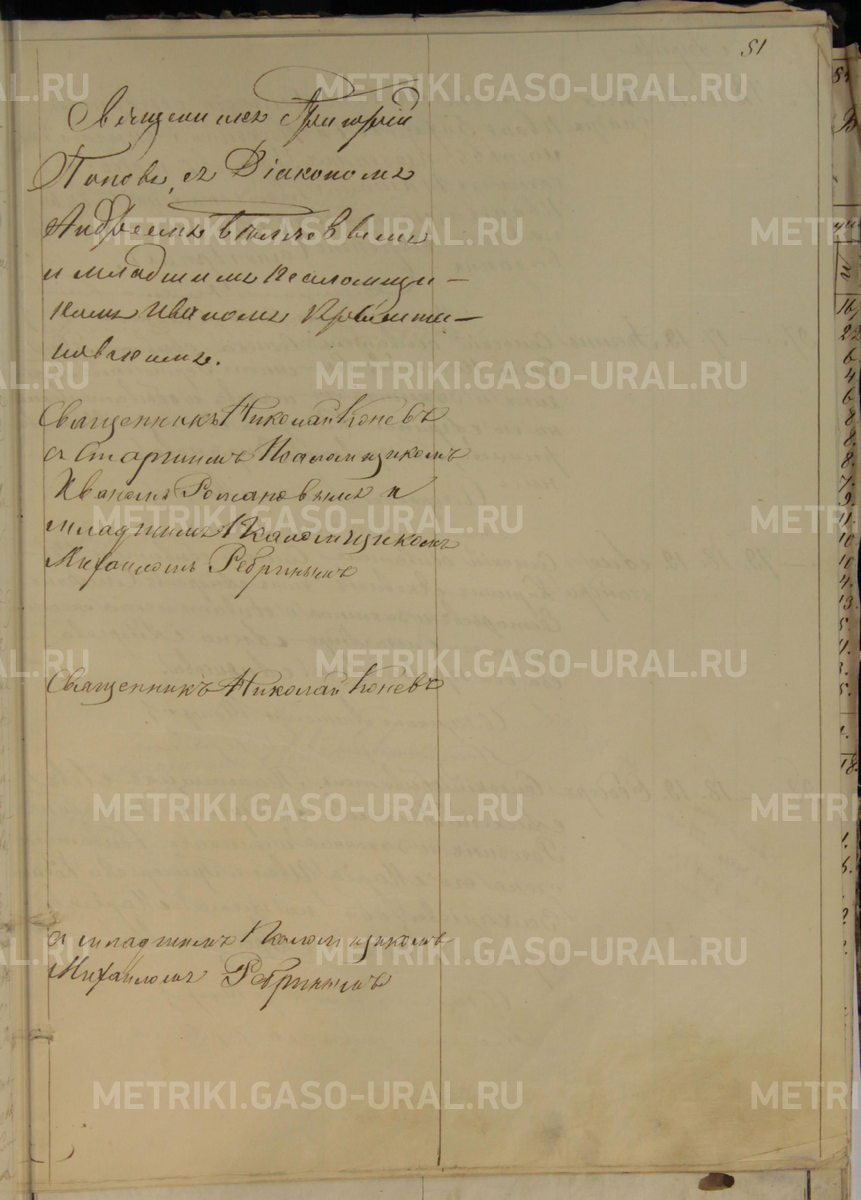 51
Священникъ Григорій
Поповъ, съ Діакономъ
Андреемъ
и младшимъ псаломщи-
комъ Иваномъ
Священникъ Николай Коневъ
съ Старшимъ Псаломщикомъ
Иваномъ Романовымъ и
младшимъ Псаломщикомъ
Михаиломъ Ребринымъ
Священникъ Николай Коневъ
съ младшимъ Псаломщикомъ
Михаиломъ Ребринымъ
METRIKI.GASO-URAL.RU